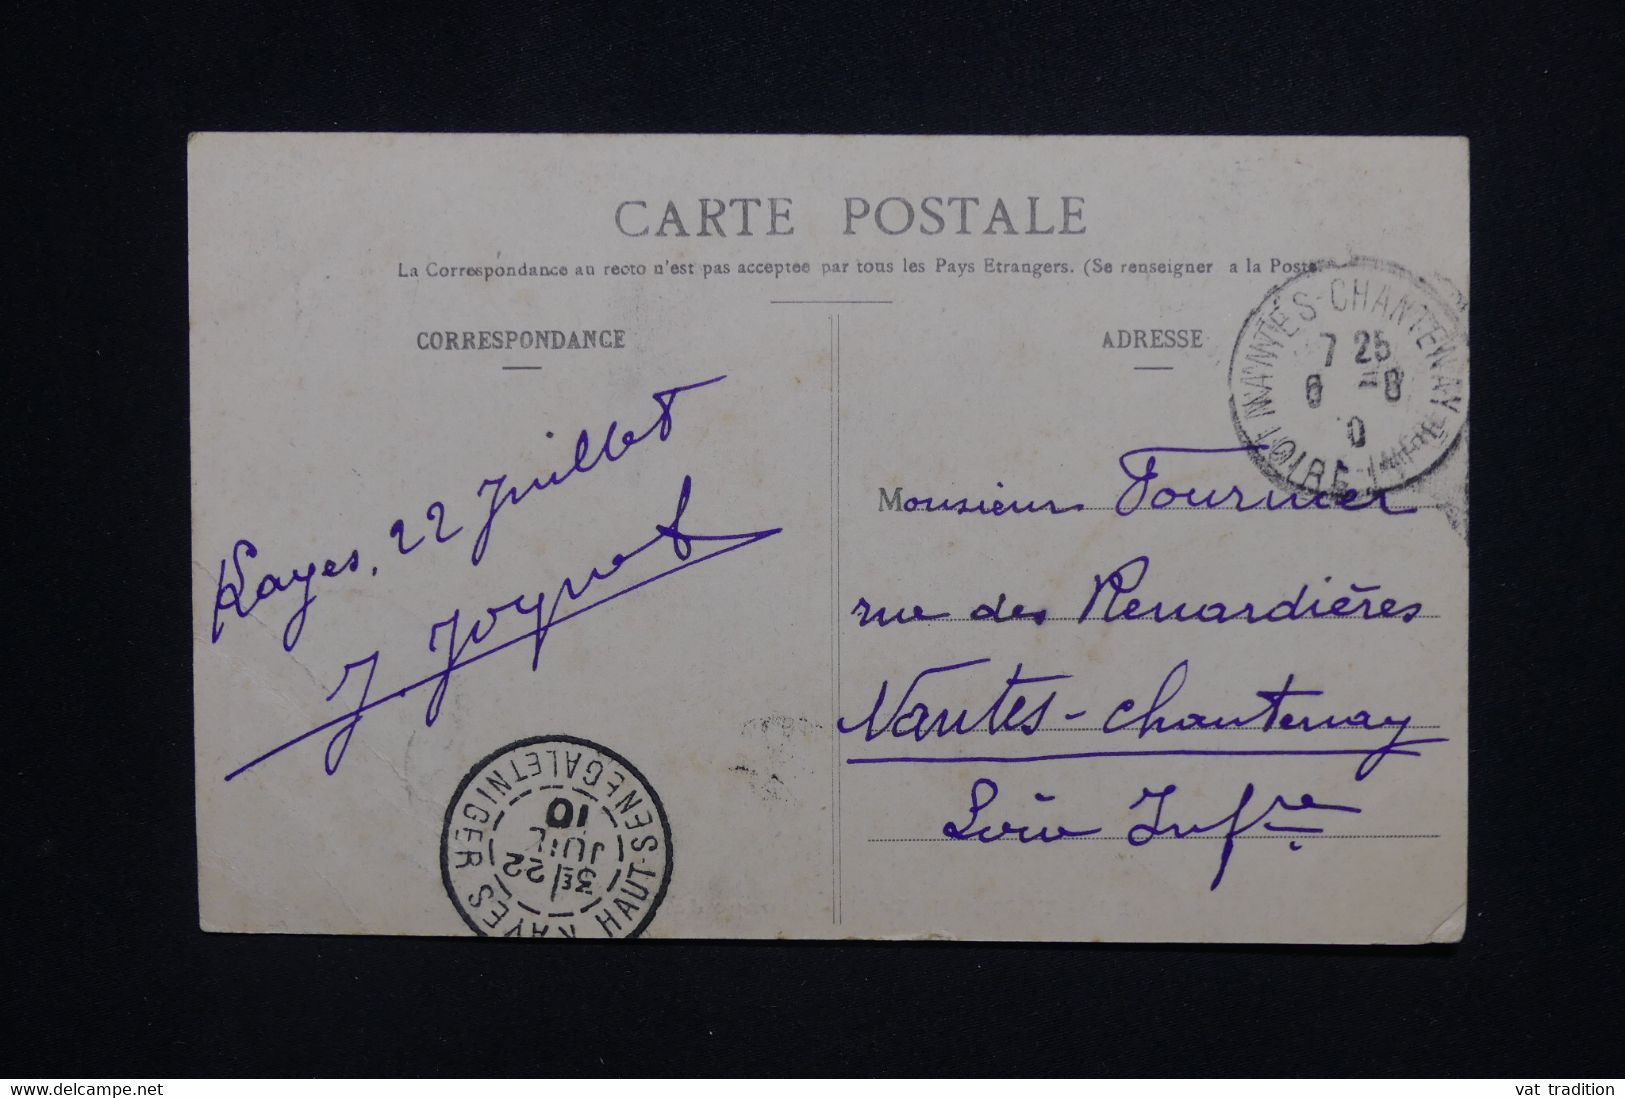 CARTE POSTALE
La Correspondance au recto n'est pas acceptee par tous les Pays Etrangers. (Se renseigner a la Poste
CORRESPONDANCE
Kayes, 22 Juillet
J. Joynet
ADRESSE
Monsieur Fournier
rue des Renardières
Nantes-Chantenay
Loire Infre
NANTES-CHANTENAY
7 25
6 -8
10
LOIRE-INFRE
KAYES HAUT-SENEGAL ET NIGER
3E/22
JUIL
10
www.delcampe.net
vat tradition